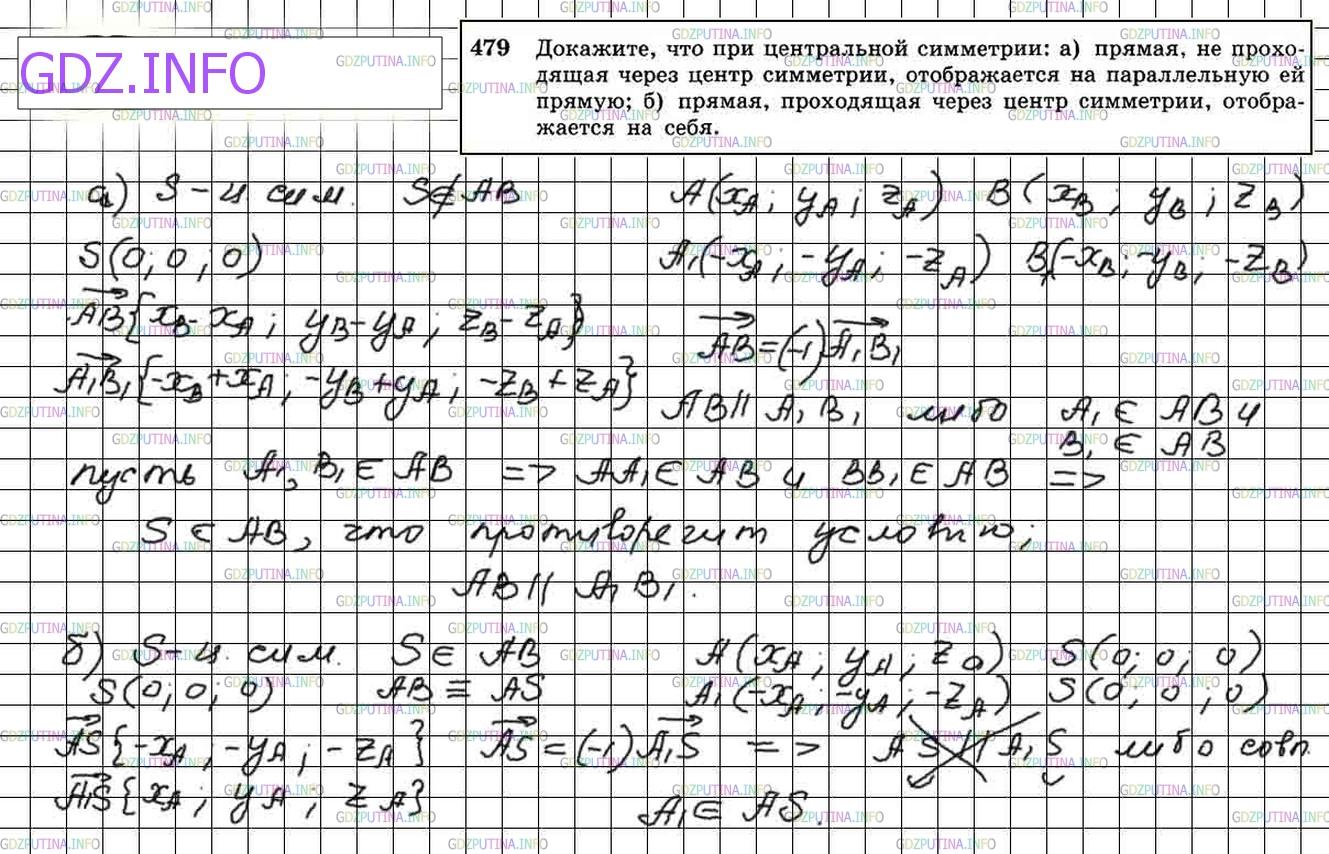 GDZ.INFO
479 Докажите, что при центральной симметрии: а) прямая, не прохо-
дящая через центр симметрии, отображается на параллельную ей
прямую; б) прямая, проходящая через центр симметрии, отобра-
жается на себя.
а) S – ц. сим. S∉AB A(x_A; y_A; z_A) B(x_B; y_B; z_B)
S(0; 0; 0) A₁(-x_A; -y_A; -z_A) B₁(-x_B; -y_B; -z_B)
AB{x_B-x_A; y_B-y_A; z_B-z_A}
AB=(-1)A₁B₁
A₁B₁{-x_B+x_A; -y_B+y_A; -z_B+z_A}
AB∥A₁B₁ либо A₁∈AB и
B₁∈AB
пусть A₁, B₁∈AB => AA₁∈AB и BB₁∈AB =>
S∈AB, что противоречит условию;
AB∥A₁B₁.
б) S – ц. сим. S∈AB A(x_A; y_A; z_A) S(0; 0; 0)
S(0; 0; 0) AB≡AS A₁(-x_A; -y_A; -z_A) S(0; 0; 0)
AS{-x_A; -y_A; -z_A} AS=(-1)A₁S => AS∥A₁S либо совп.
A₁S{x_A; y_A; z_A}
A₁∈AS.
GDZPUTINA.INFO